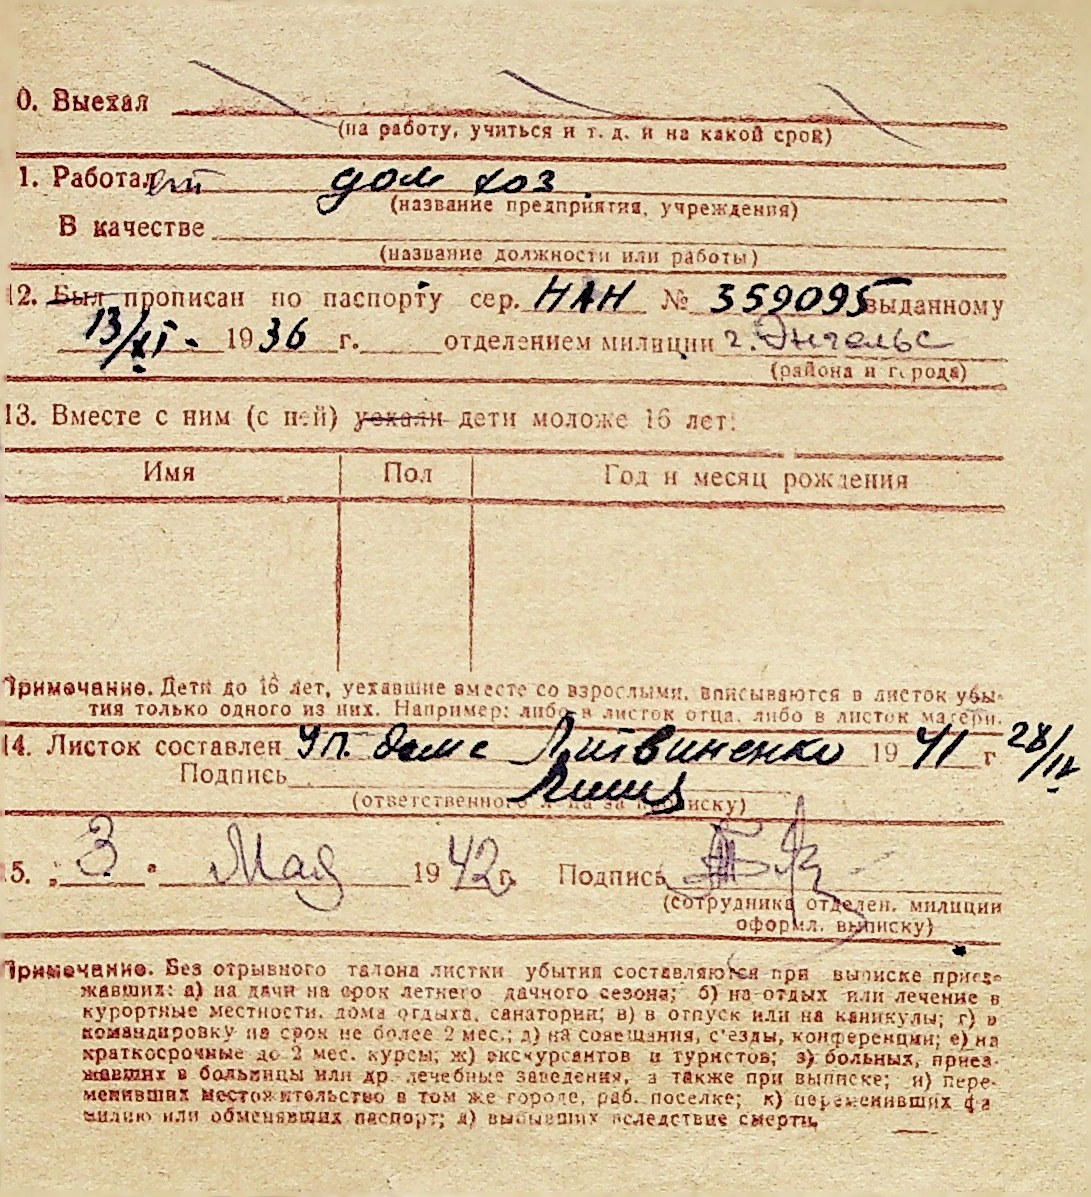 0. Выехал
(на работу, учиться и т. д. и на какой срок)
1. Работал дом хоз.
(название предприятия, учреждения)
В качестве
(название должности или работы)
12. Был прописан по паспорту сер. НАН № 359095 выданному
13/XI - 1936 г. отделением милиции г. Энгельс
(района и города)
13. Вместе с ним (с ней) уехали дети моложе 16 лет:
Имя Пол Год и месяц рождения
Примечание. Дети до 16 лет, уехавшие вместе со взрослыми, вписываются в листок убы-
тия только одного из них. Например: либо в листок отца, либо в листок матери.
14. Листок составлен Уп. дома Литвиненко 1941 г 28/IV
Подпись
(ответственного лица за прописку)
15. „3" Мая 1942 г. Подпись
(сотрудника отделен. милиции
оформл. выписку)
Примечание. Без отрывного талона листки убытия составляются при выписке приез-
жавших: а) на дачи на срок летнего дачного сезона; б) на отдых или лечение в
курортные местности, дома отдыха, санатории; в) в отпуск или на каникулы; г) в
командировку на срок не более 2 мес.; д) на совещания, с'езды, конференции; е) на
краткосрочные до 2 мес. курсы; ж) экскурсантов и туристов; з) больных, приез-
жавших в больницы или др. лечебные заведения, а также при выписке; и) пере-
менивших местожительство в том же городе, раб. поселке; к) переменивших фа
милию или обменявших паспорт; л) выбывших вследствие смерти.